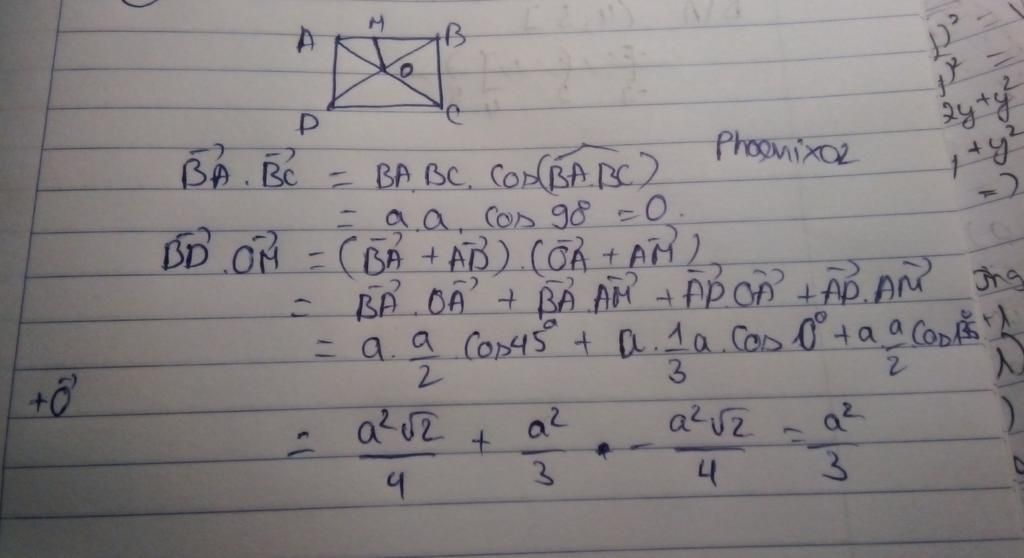 A M B
O
D C
Phoenix02
BA⃗ . BC⃗ = BA.BC. cos(BA⃗.BC⃗)
= a.a. cos 90° = 0.
BD⃗ . OM⃗ = (BA⃗ + AD⃗).(OA⃗ + AM⃗)
= BA⃗.OA⃗ + BA⃗.AM⃗ + AD⃗.OA⃗ + AD⃗.AM⃗
= a. a/2 cos45° + a. 1/3 a. cos 0° + a a/2 cos
+ O⃗
= a²√2/4 + a²/3 - a²√2/4 = a²/3
2y+y²
+y²
=)